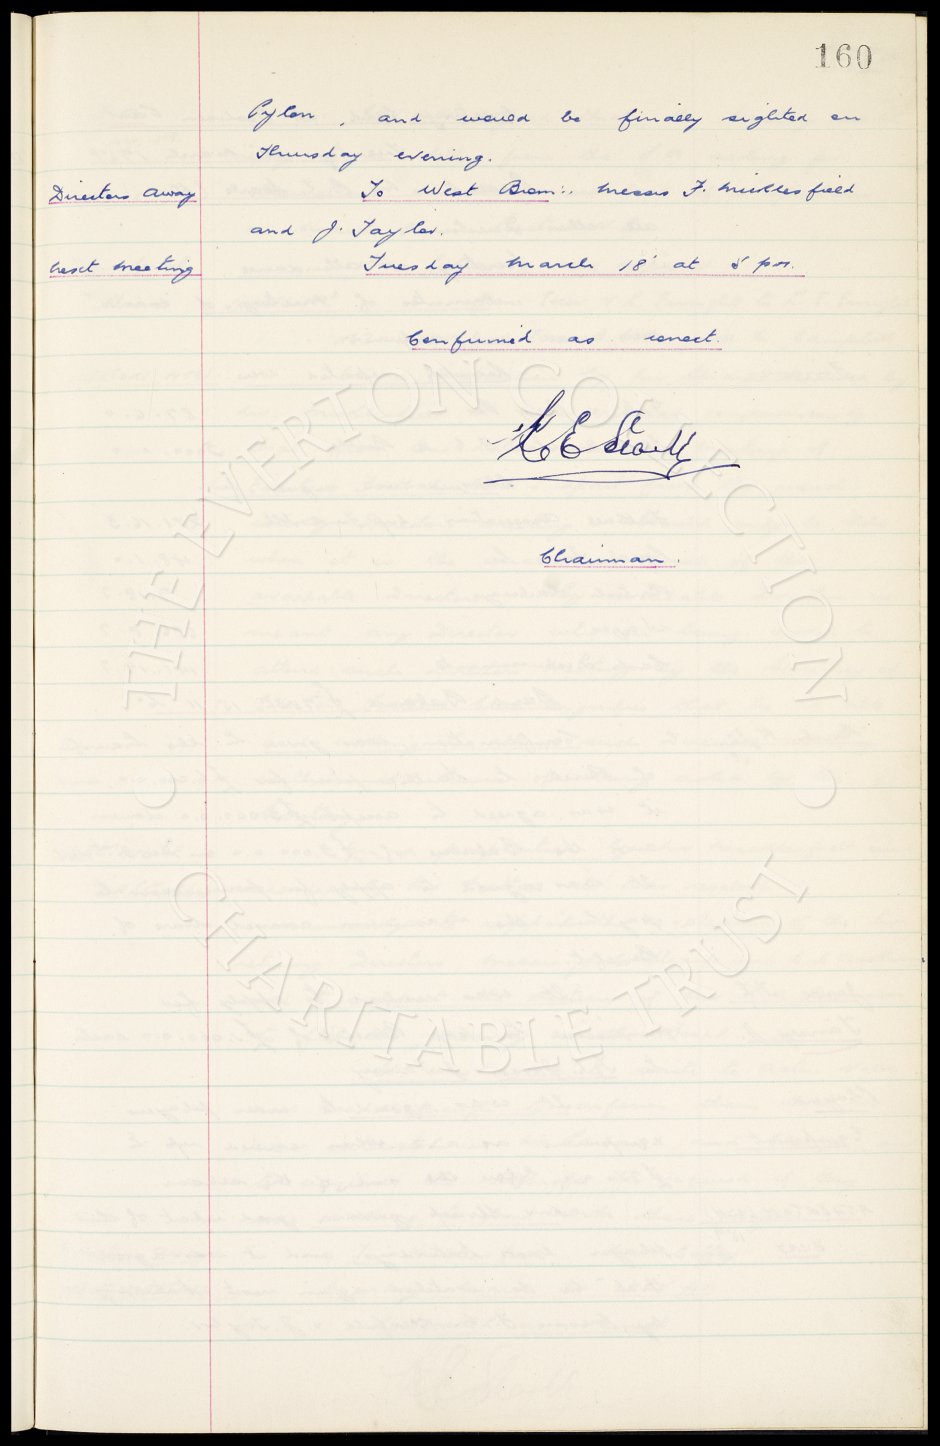 160
Pylon, and would be finally sighted on
Thursday evening.
Directors Away To West Brom:. Messrs F. Micklesfield
and J. Taylor.
Next Meeting Tuesday March 18' at 5 pm.
Confirmed as correct.
E Scott
Chairman.
THE EVERTON COLLECTION
CHARITABLE TRUST